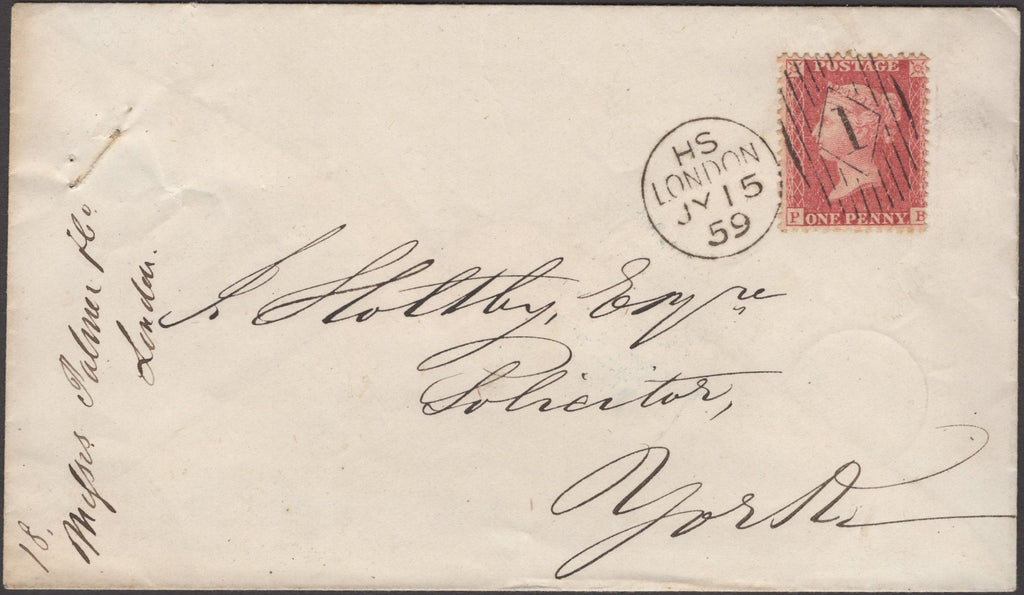 POSTAGE
1
P ONE PENNY B
HS
LONDON
JY 15
59
J Holtby, Esqre
Solicitor,
York
18.
Messrs Palmer & Co.
London.